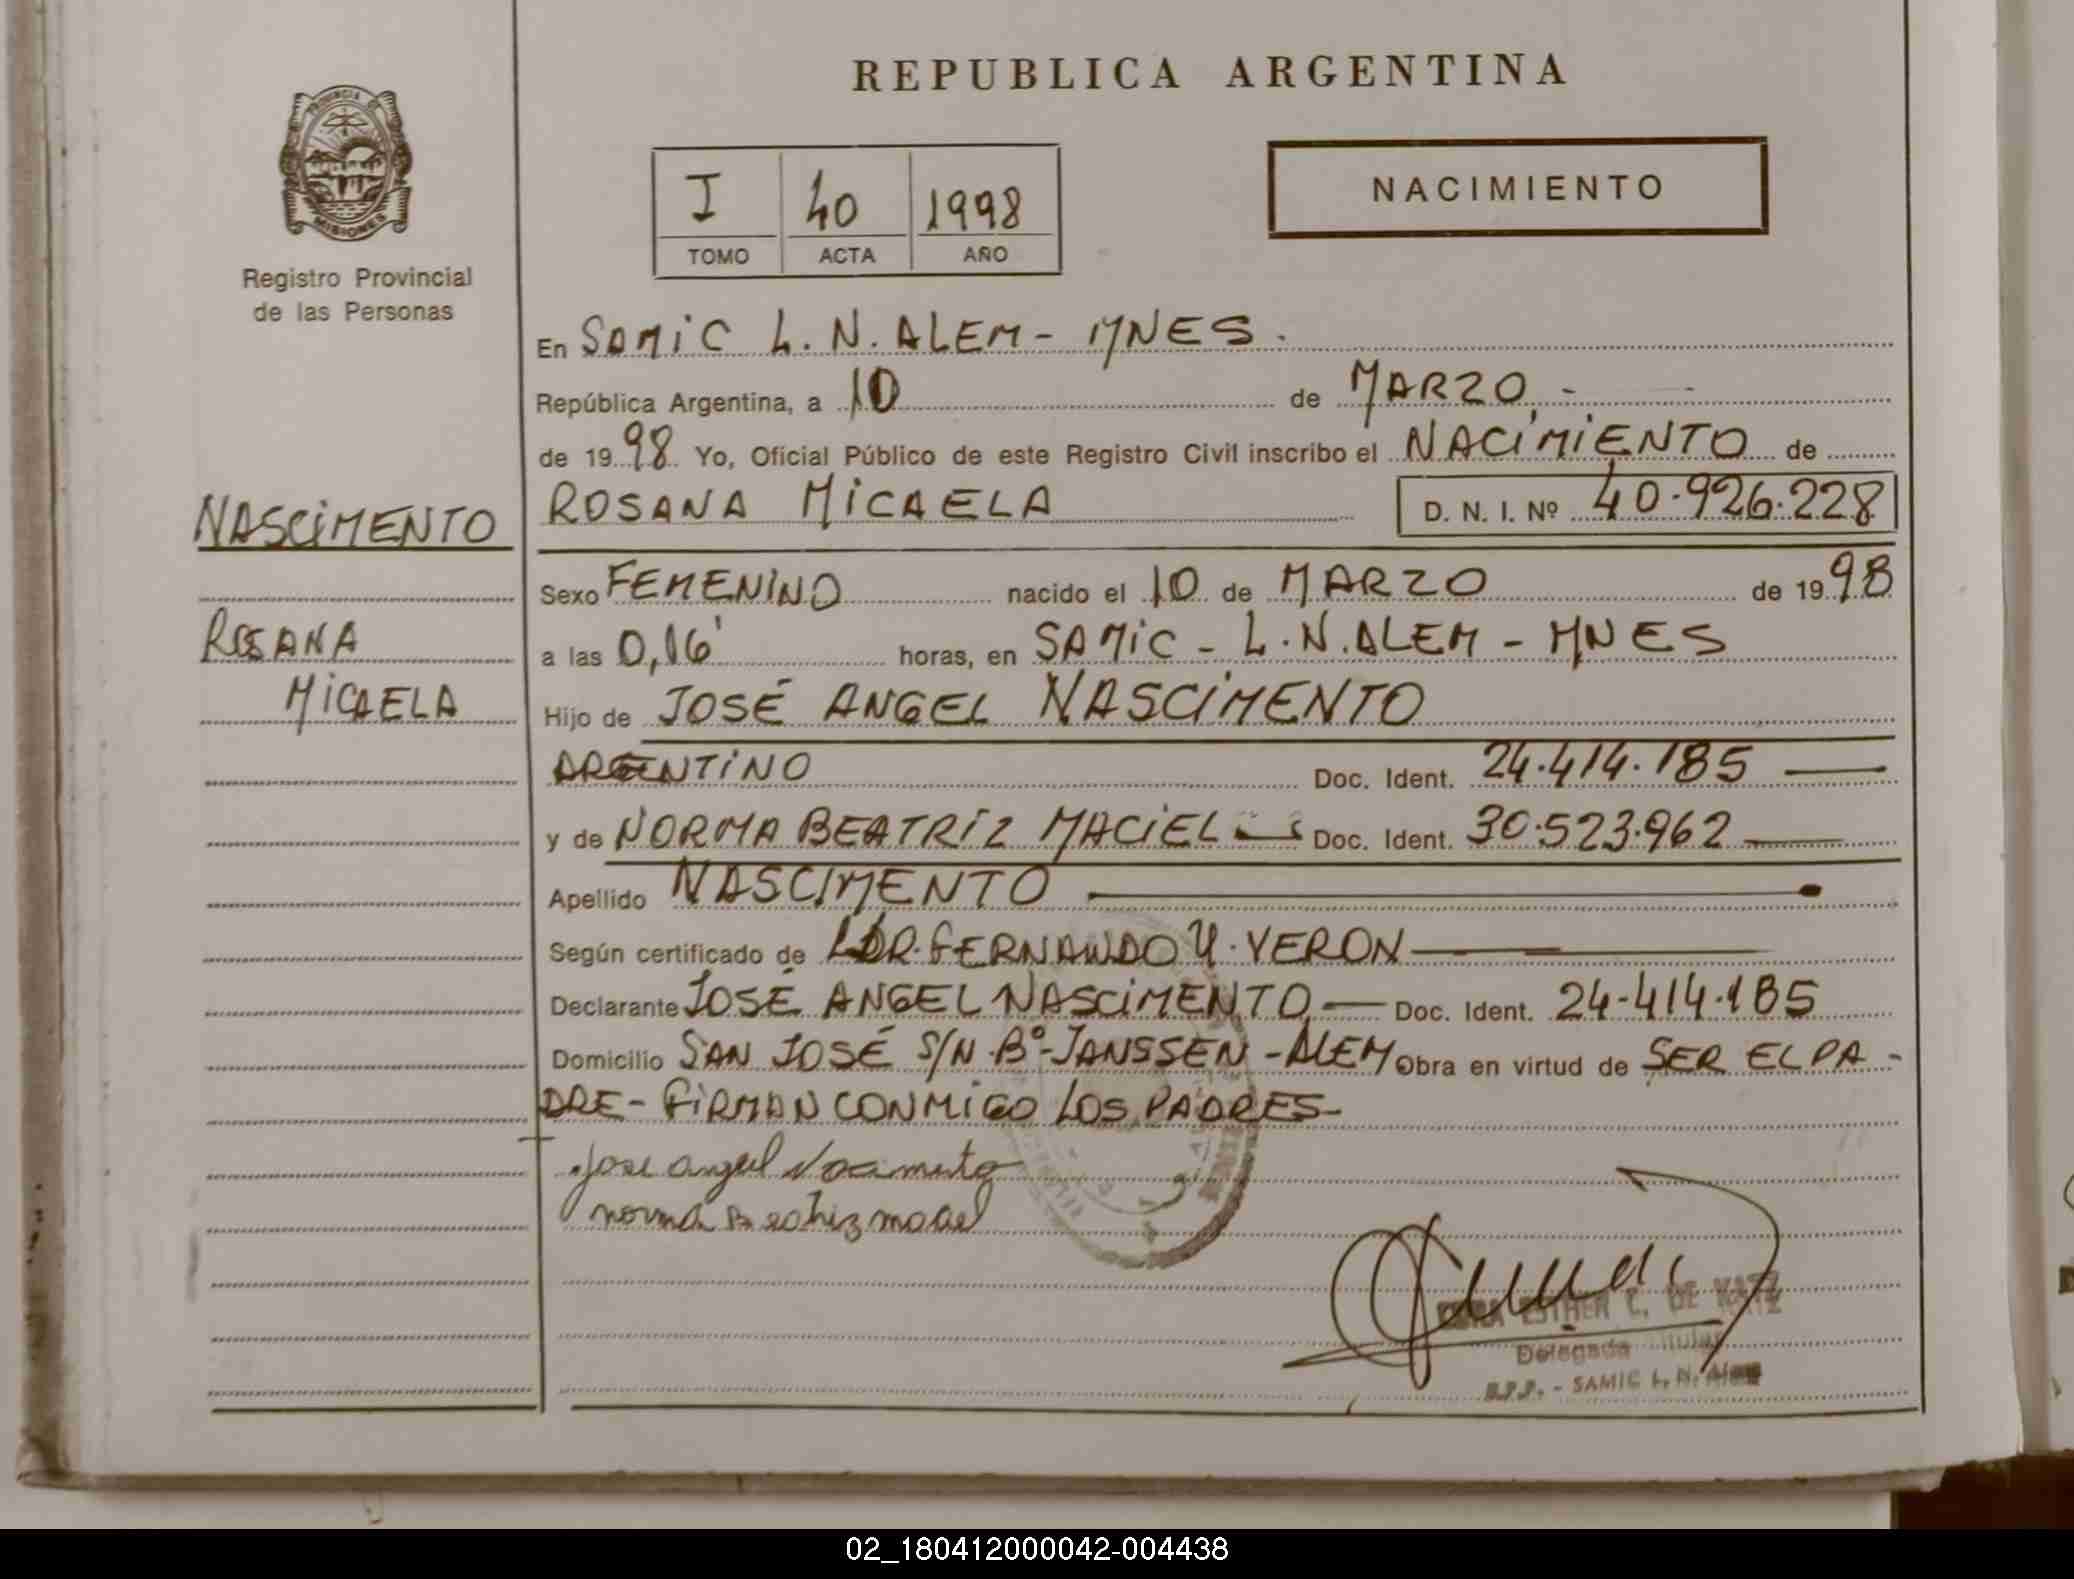 REPUBLICA ARGENTINA
PROVINCIA DE
MISIONES
Registro Provincial
de las Personas
I 40 1998
TOMO ACTA AÑO
NACIMIENTO
En SAMIC L.N.ALEM - MNES.
República Argentina, a 10 de MARZO.-
de 1998 Yo, Oficial Público de este Registro Civil inscribo el NACIMIENTO de
ROSANA MICAELA D. N. I. Nº 40.926.228
NASCIMENTO
ROSANA
MICAELA
Sexo FEMENINO nacido el 10 de MARZO de 1998
a las 0,16' horas, en SAMIC - L.N.ALEM - MNES
Hijo de JOSÉ ANGEL NASCIMENTO
ARGENTINO Doc. Ident. 24.414.185
y de NORMA BEATRIZ MACIEL Doc. Ident. 30.523.962
Apellido NASCIMENTO
Según certificado de DR. FERNANDO Y. VERON
Declarante JOSÉ ANGEL NASCIMENTO Doc. Ident. 24-414.185
Domicilio SAN JOSÉ S/N.Bº-JANSSEN-ALEM Obra en virtud de SER EL PA-
DRE - FIRMAN CONMIGO LOS PADRES-
jose angel
norma Beatriz maciel
ESTHER C. DE KATZ
Delegada Titular
R.P.P. - SAMIC L. N. Alem
02_180412000042-004438